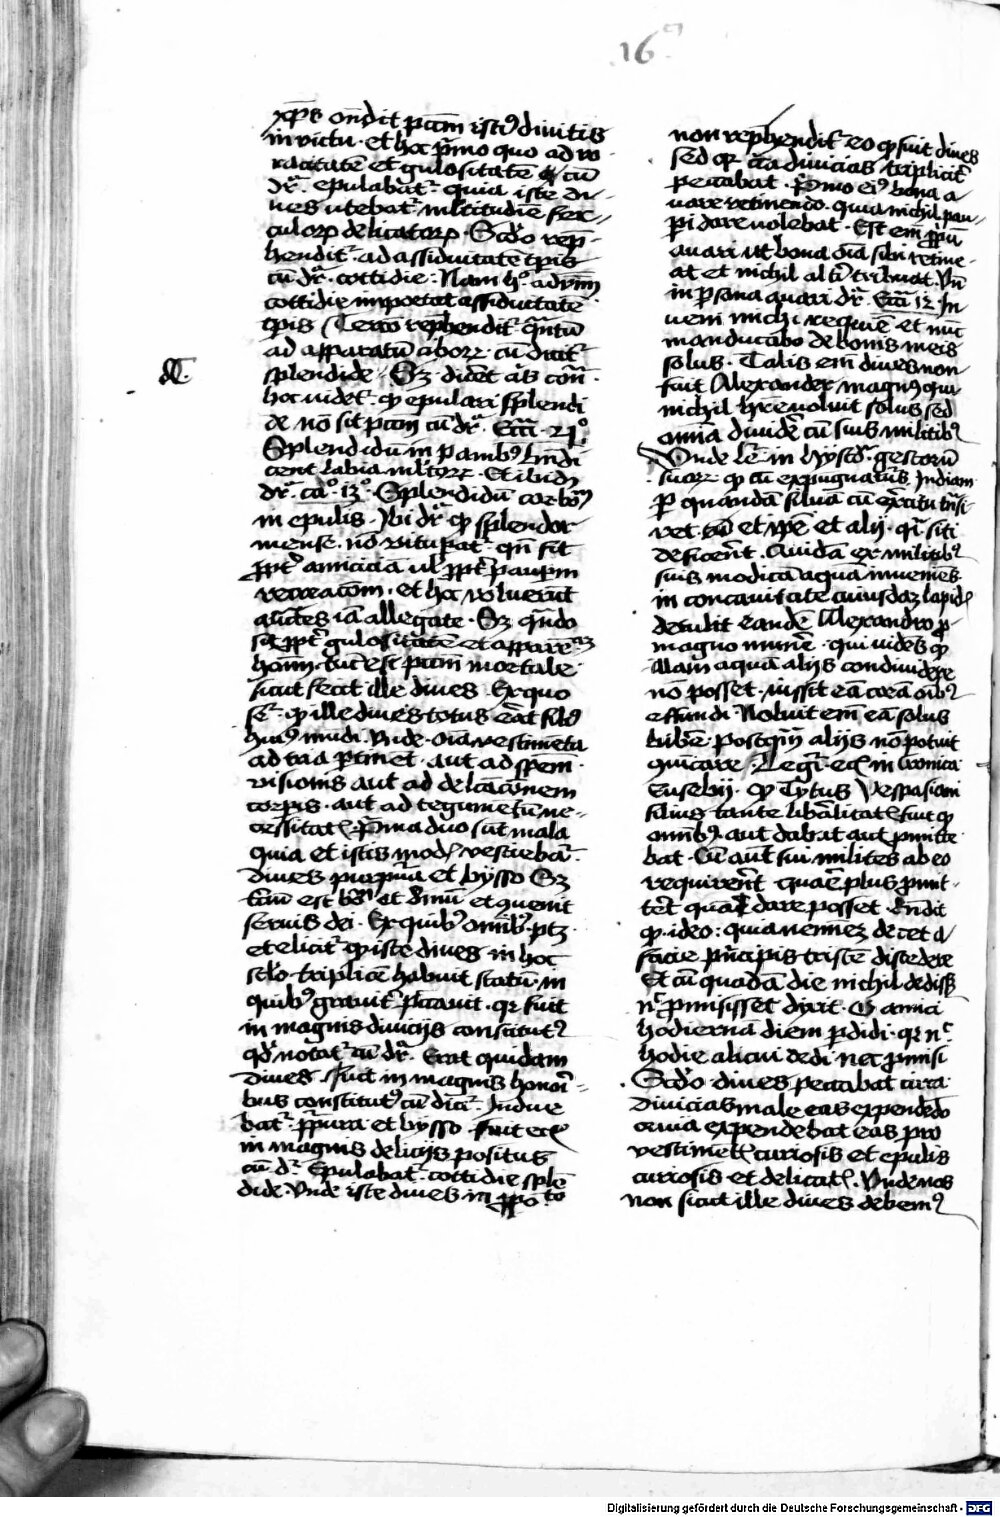 16
xp̄s on̄dit pc̄cm istiꝰ diuitis
in victu · et hoc pͥmo quo ad vo
racitatē et gulositatē cū
dr̄ · epulabat᷑ · quia iste di-
ues utebat᷑ mltitudīe fer-
culoꝝ delicatoꝝ · Scd̓o rep̄-
hendit᷑ · ad assiduitatē tp̄is
cū dr̄ · cottidie · Nam h° aduerbiū
cottidie importat assiduitatē
tp̄is Tercō rep̄hendit᷑ quātū
ad apparatū ciborꝝ · cū dicit᷑
splendide · Sꝫ dicēt
hoc videt᷑ · ꝙ epulari splendi
de nō sit pc̄cm cū dr̄ · Ecc̄i · 21°
Splendidum in panibꝰ bn̄di
cent labia mltorꝝ · Et ibidē
dr̄ · ca° · 13° · Splendidū cor bonū
in epulis · Ibi dr̄ ꝙ splendor
mense · nō vitupat᷑ · qn̄ fit
ꝓpt᷑ amicicia ul̓ ꝓpt᷑ paupm
recreacōm · et hoc voluerūt
auctes iā allegate · Sꝫ qn̄do
fit ꝓpt᷑ gulositatē et apparē
hoīm · tūc est pc̄cm mortale
sicut fecit ille diues · Ex quo
ꝙ ille diues totus erat filiꝰ
huiꝰ mūdi · Vnde · oīa vestimēta
ad tria ptinēt · aut ad spem
visionis aut ad delcācōnem
corpis · aut ad tegumētū ne-
cessitatꝭ · Pͥma duo sūt mala
quia et istis modꝭ vestiebat᷑
diues purpura et bysso Sꝫ
tciū est bonū et diuinū et ꝯuenit
seruis dei · Ex quibꝰ omībꝰ · ptꝫ
et elicit᷑ ꝙ iste diues in hoc
sclo · triplicē habuit statū · in
quibꝰ grauit᷑ peccauit · qꝛ fuit
in magnis diuicijs constitutꝰ
qd̓ notat᷑ cū dr̄ · Erat quidam
diues · Fuit in magnis honori-
bus constitutꝰ cū dicit᷑ · Indue
bat᷑ · purpura et bysso · fuit eciā
in magnis delicijs positus
cū dr̄ · Epulabat᷑ · cottidie splē
dide · Vnde iste diues in
non rephendit᷑ eo ꝙ fuit diues
sed qꝛ circa diuicias triplicit᷑
peccabat · Pͥmo eiꝰ bona a-
uare retinendo · quia nichil pau-
pi dare volebat · Est em̄ ꝓpͥū
auari ut bona oīa sibi retine-
at et nichil altͥi tribuat · Vn̄
in psona auari dr̄ · Ecc̄i 12 In
ueni michi requiē · et nūc
manducabo de bonis meis
solus · Talis em̄ diues non
fuit Alexander magnꝰ qui
nichil hr̄e voluit solus sed
omīa diuidē cū suis militibꝰ
Vnde leḡ in hystoͬ · gestorū
suorꝝ ꝙ cū expugnaturus Indiam
p quandā siluā cū exͬcitu trāsi-
ret · et ipē et alij · qͥ siti
deficeret · Quidā ex militibꝰ
suis modicā aquā inueniēs
in concauitate cuiusdaꝫ lapidꝭ
detulit eandē Alexandro ꝓ
magno mūnē · qui vidēs ꝙ
illam aquā alijs condiuidere
nō posset · iussit eā corā oībꝰ
effundi Noluit em̄ eā solus
bibere · postqͣꝫ alijs nō potuit
ꝯuīcare · Legr̄ · eciā in Cronica
Eusebij · ꝙ Tytus Vespasiani
filius · tante libalitatꝭ fuit ꝙ
omībꝰ aut dabat aut pmitte
bat · Cū aūt sui milites ab eo
requirerēt · quare plus pmit-
teret quā dare posset · Rn̄dit
ꝙ · ideo : quia neminē decet a
facie pͥncipis tristē discedere
Et cū quadā die nichil dedissꝫ
nec pmisisset dixit · O amici
hodierna diem pdidi · qꝛ nͨ
hodie alicui dedi nec pmisi
Scd̓o diues peccabat circa
diuicias male eas expendēdo
omīa expendebat eas pro
vestimētꝭ curiosis et epulis
curiosis et delicatꝭ · Vnde nos
non sicut ille diues debemꝰ
Digitalisierung gefördert durch die Deutsche Forschungsgemeinschaft - DFG